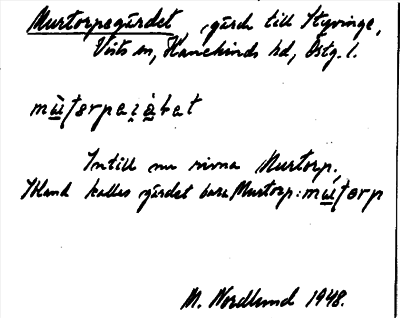 Murtorpegärdet gärde till Styvinge,
Vists sn, Hanekinds hd, Östg. l.
Intill nu rivna Murtorp,
Ibland kallas gärdet bara Murtorp:
M. Nordlund 1948.